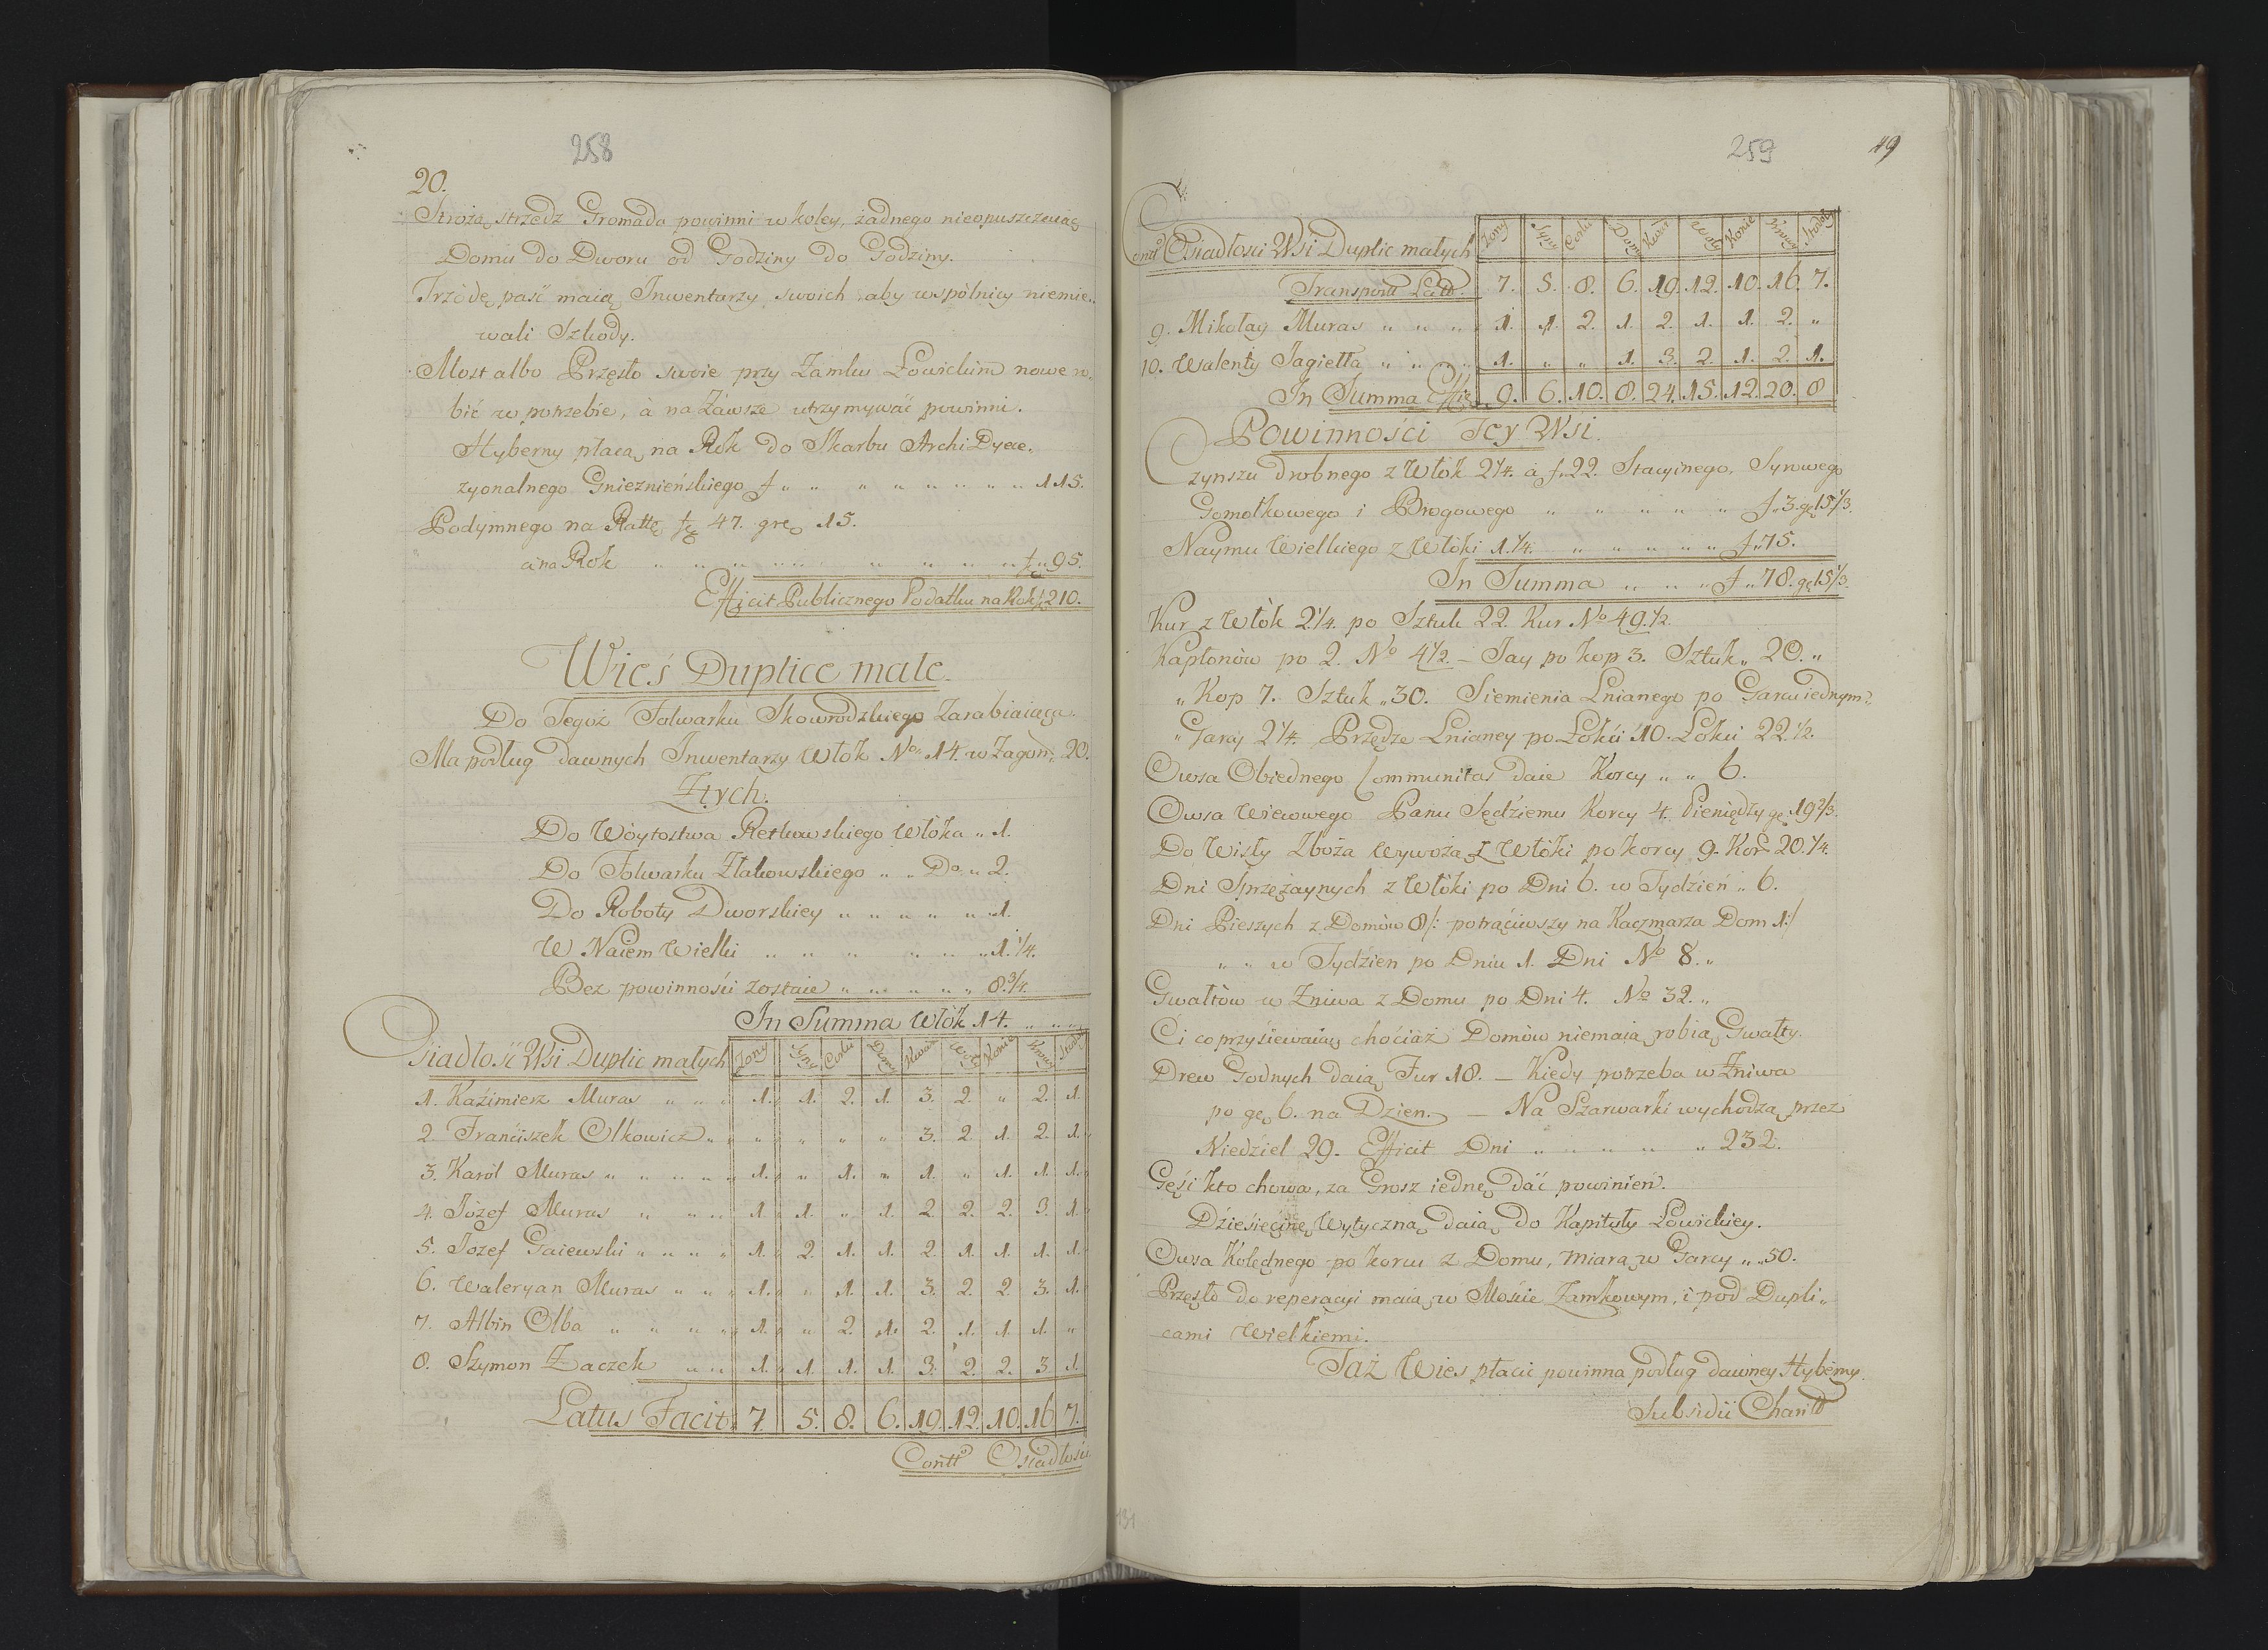 258
20.
Strożą strzedz Gromada powinni w koley, żadnego nieopuszczaiąc
Domu do Dworu od Godziny do Godziny.
Trzodę paść maią Inwentarzy swoich aby wspólnicy niemie„
wali Szkody.
Most albo Przęsło swoie przy Zamku Łowickim nowe ro„
bić w potrzebie, à na Zawsze utrzymywać powinni.
Hyberny płacą na Rok do Skarbu ArchiDyece„
zyonalnego Gnieznieńskiego f „ „ „ „ „ „ „ „ 115.
Podymnego na Rattę fę 47. grę 15.
à na Rok „ „ „ „ „ „ „ „ „ fę „ 95.
Efficit Publicznego Podatku na Rok f 210.
Wieś Duplice małe.
Do Tegoż Folwarku Skowrodzkiego Zarabiaiąca.
Ma podług dawnych Inwentarzy Włók No. 14. w Zagon: 20.
Z tych.
Do Woytostwa Retkowskiego Włóka „ 1.
Do Folwarku Złakowskiego „ „ Do „ 2.
Do Roboty Dworskiey „ „ „ „ „ „ 1.
W Naiem Wielki „ „ „ „ „ „ 1.1/4.
Bez powinności zostaie „ „ „ „ „ 8.3/4.
In Summa Włók 14. „ „ „
Osiadłość Wsi Duplic małych Żony Syny Corki Domy Kwar: Woły Konie Krowy Stodoły
1. Kaźimierz Muras „ „ „ 1. 1. 2. 1. 3. 2. „ 2. 1.
2. Franciszek Olkowicz „ „ „ „ „ 3. 2. 1. 2. 1.
3. Karól Muras „ „ „ „ „ 1. „ 1. „ 1. „ 1. 1. 1.
4. Józef Muras „ „ „ 1. 1. „ 1. 2. 2. 2. 3. 1.
5. Jozef Gaiewski „ „ „ „ 1. 2. 1. 1. 2. 1. 1. 1. 1.
6. Waleryan Muras „ „ „ 1. „ 1. 1. 3. 2. 2 3. 1.
7. Albin Olba „ „ „ „ 1. „ 2. 1. 2. 1. 1. 1. „
8. Szymon Żaczek „ „ 1. 1. 1. 1. 3. 2. 2. 3 1.
Latus Facit. 7. 5. 8. 6. 19. 12. 10. 16 7.
Conttd Osiadłości
259
19
Conttd Osiadłości Wsi Duplic małych Żony Syny Corki Domy Kwar: Woły Konie Krowy Stodoły
Transport 7. 5. 8. 6. 19. 12. 10. 16. 7.
9. Mikołay Muras „ „ „ 1. 1. 2. 1. 2. 1. 1. 2. „
10. Walenty Jagiełła „ „ „ 1. „ „ 1. 3. 2. 1. 2. 1.
In Summa Effic 9. 6. 10. 8. 24. 15. 12. 20. 8
Powinności Tey Wsi.
Czynszu drobnego z Włók 21/4. à f. 22. Stacyinego, Syrowego
Gomołkowego i Brogowego „ „ „ „ „ f „ 3. gę 151/3.
Naymu Wielkiego z Włóki 1.1/4. „ „ „ „ „ f „ 75.
In Summa „ „ „ f „ 78. gę 151/3.
Kur z Włók 21/4. po Sztuk 22. Kur No 49.1/2.
Kapłonów po 2. No 41/2. – Jay po kop 3. Sztuk „ 20. „
„ Kop 7. Sztuk „ 30. Siemienia Lnianego po Garcu iednym:
„ Garcy 21/4. Przędze Lnianey po Łokci 10. Łokci 22 1/2.
Owsa Obiednego Communitas daie Korcy „ „ 6.
Owsa Wiecowego Panu Sędźiemu Korcy 4. Pieniędzy gę 192/3.
Do Wisły Zboża wywożą z Włóki po korcy 9. Kor: 20.1/4.
Dni Sprzężaynych z Włóki po Dni 6. w Tydźień „ 6.
Dni Pieszych z Domów 8 /: potrąćiwszy na Kaczmarza Dom 1:/
„ „ w Tydźien po Dniu 1. Dni No 8. „
Gwałtów w Żniwa z Domu po Dni 4. No 32. „
Ci co przysiewaią chóćiaż Domów niemaią robią Gwałty.
Drew Godnych daią Fur 18. – Kiedy potrzeba w Żniwa
po gę 6. na Dzien. – Na Szarwarki wychodzą przez
Niedźiel 29. Efficit Dni „ „ „ „ „ 232.
Gęśi kto chowa, za Grosz iednę dáć powinień.
Dźieśięćinę Wytyczną daią do Kapituły Łowickiey.
Owsa Kolędnego po korcu z Domu, miarą w Garcy „ 50.
Przęsło do reperacyi maią w Mośćie Zamkowym, i pod Dupli„
cami Wielkiemi.
Taż Wieś płacić powinna podług dawney Hyberny.
Subsidii Charittd